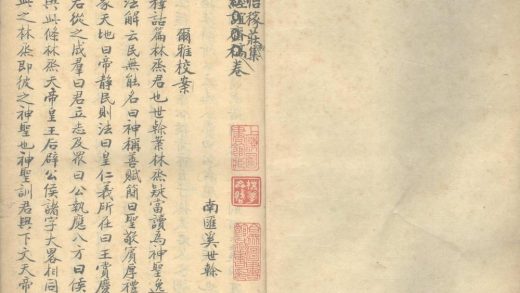 莊集
經誼齋稿卷
南匯奚世榦
爾雅校案
釋詁篇林烝君也世榦案林烝疑當讀爲神聖逸
法解云民無能名曰神稱善賦簡曰聖敬賓厚禮
象天地曰帝靜民則法曰皇仁義所在曰王賞慶
君從之成羣曰君立志及眾曰公執應八方曰侯
與條林烝天帝皇王后辟公侯諸字大畧相同
之林烝即彼之神聖也神聖訓君與下文天帝